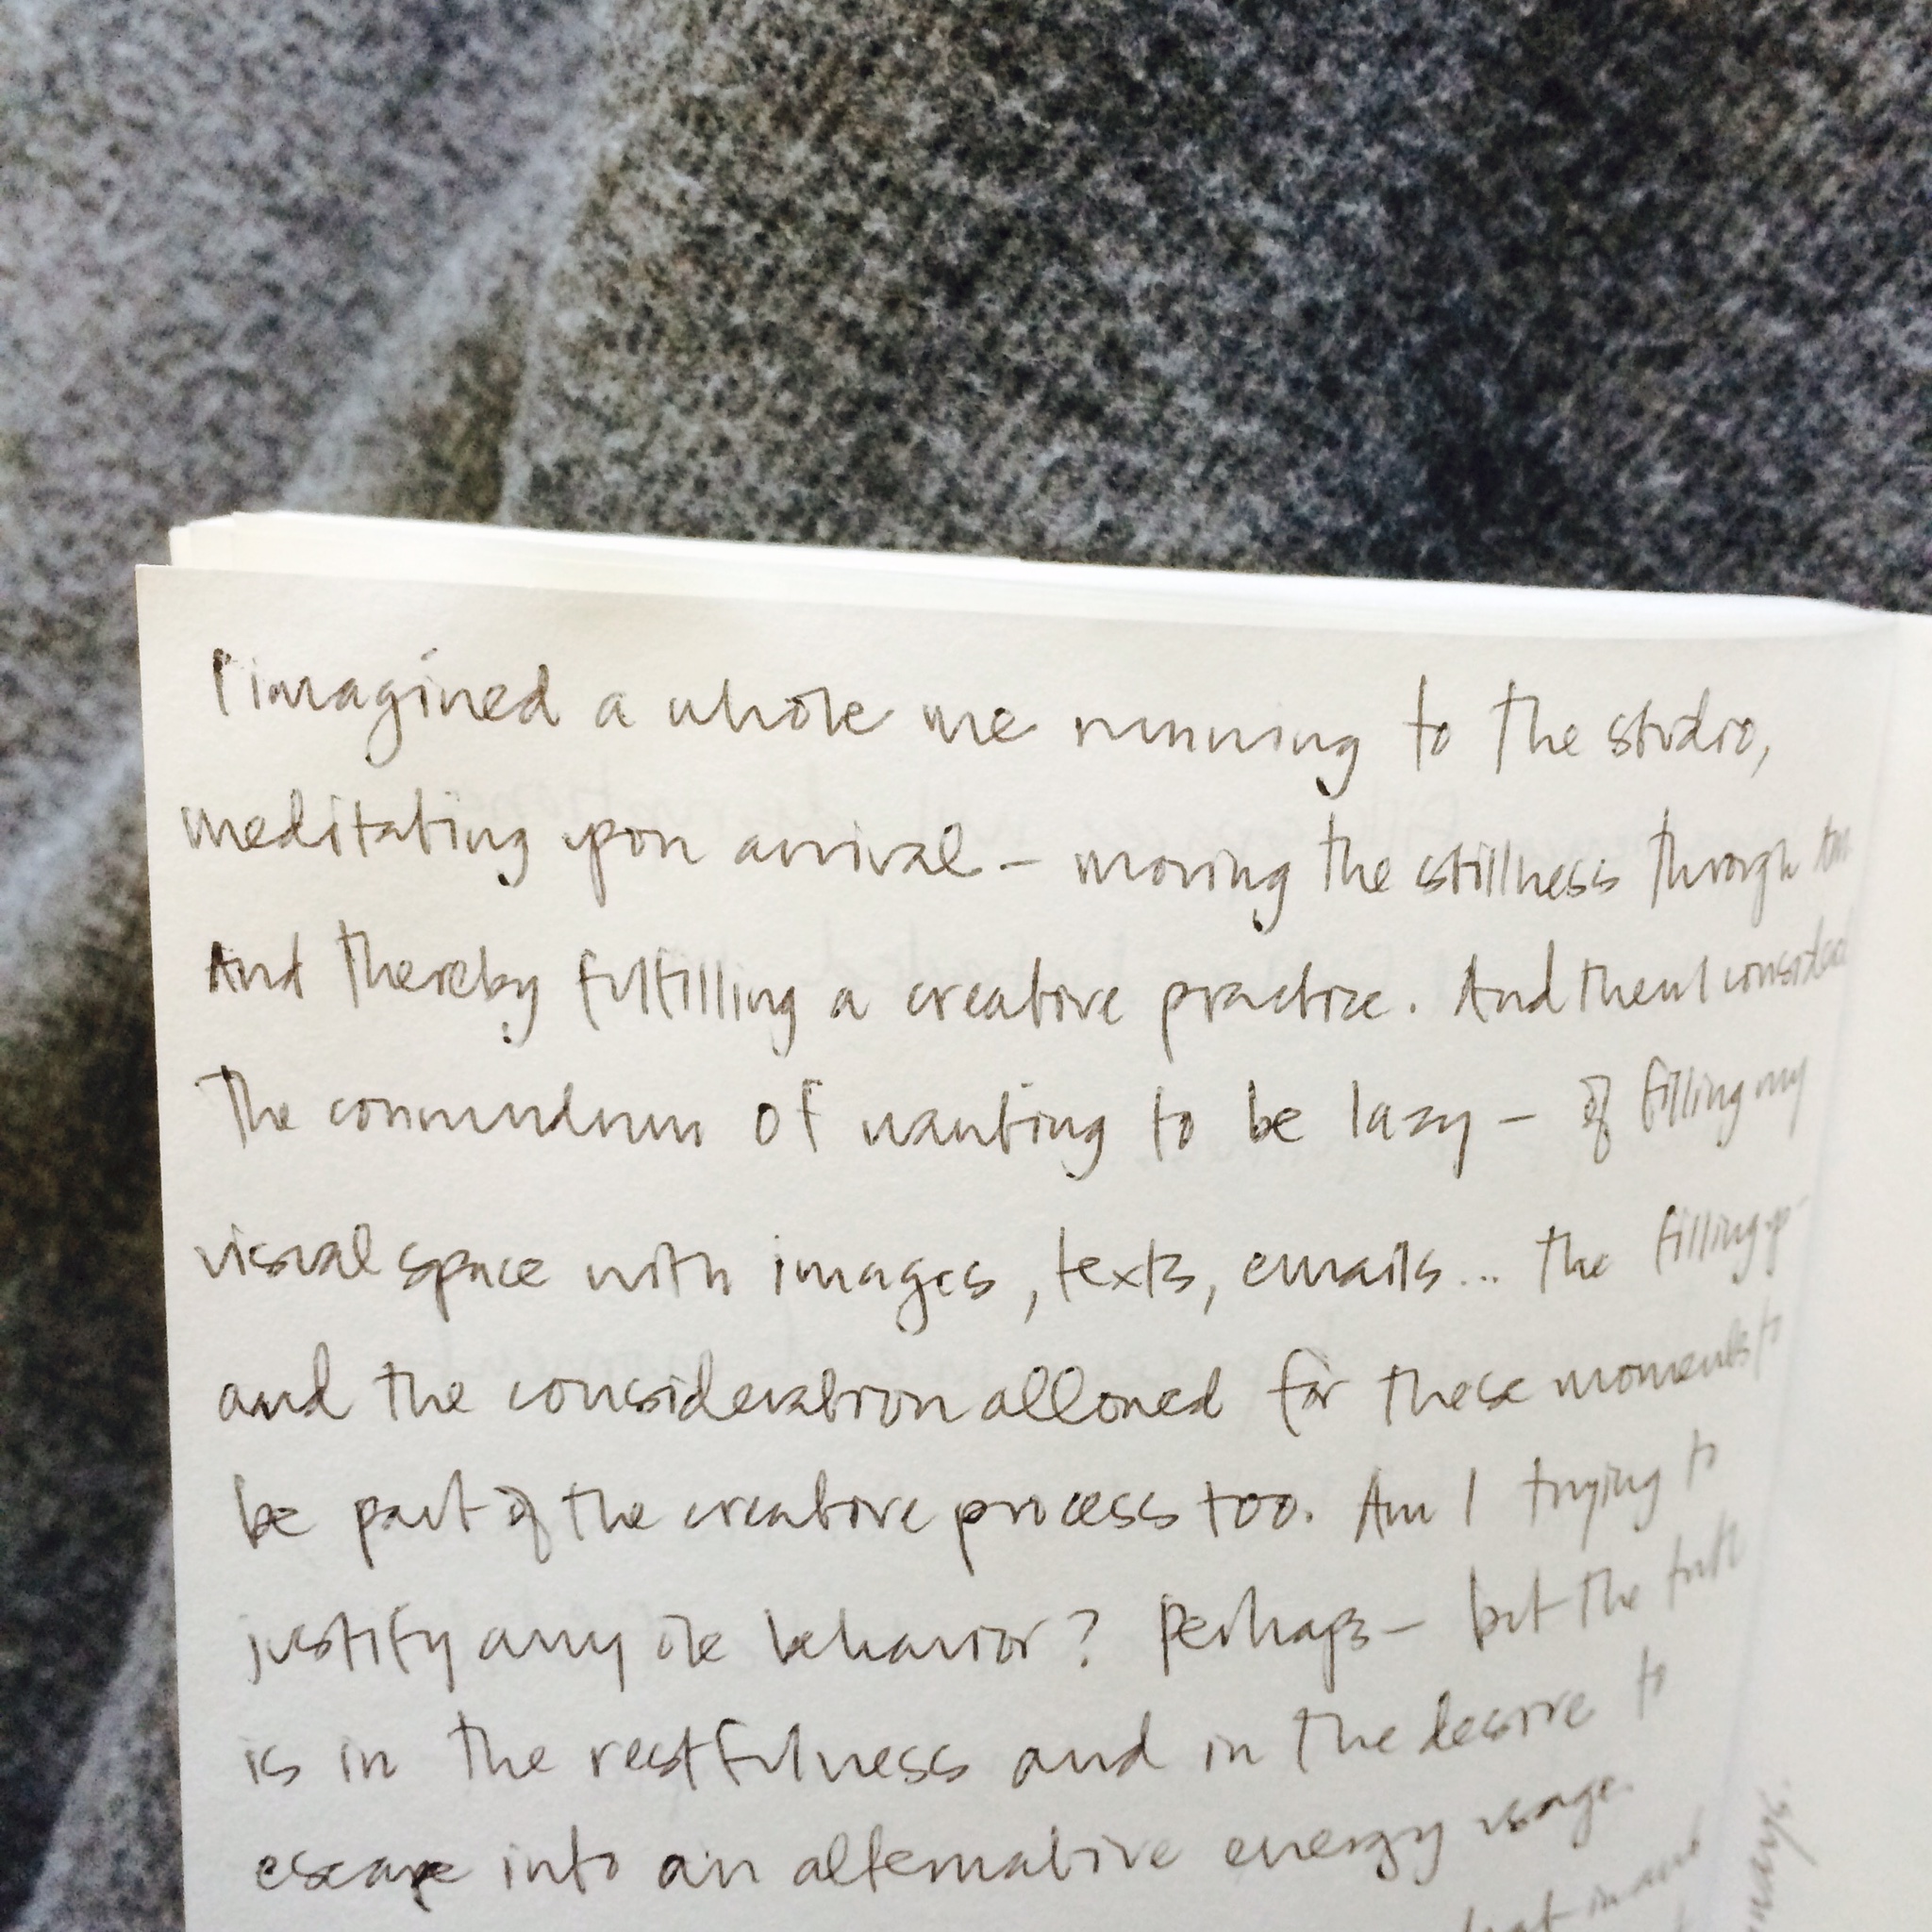 I imagined a whole me running to the studio,
meditating upon arrival – moving the stillness through
And thereby fulfilling a creative practice. And then I considered
the conundrum of wanting to be lazy – of filling my
visual space with images, texts, emails... the filling up
and the consideration allowed for these moments to
be part of the creative process too. Am I trying to
justify any ole behavior? Perhaps – but the truth
is in the restfulness and in the desire to
escape into an alternative energy usage.